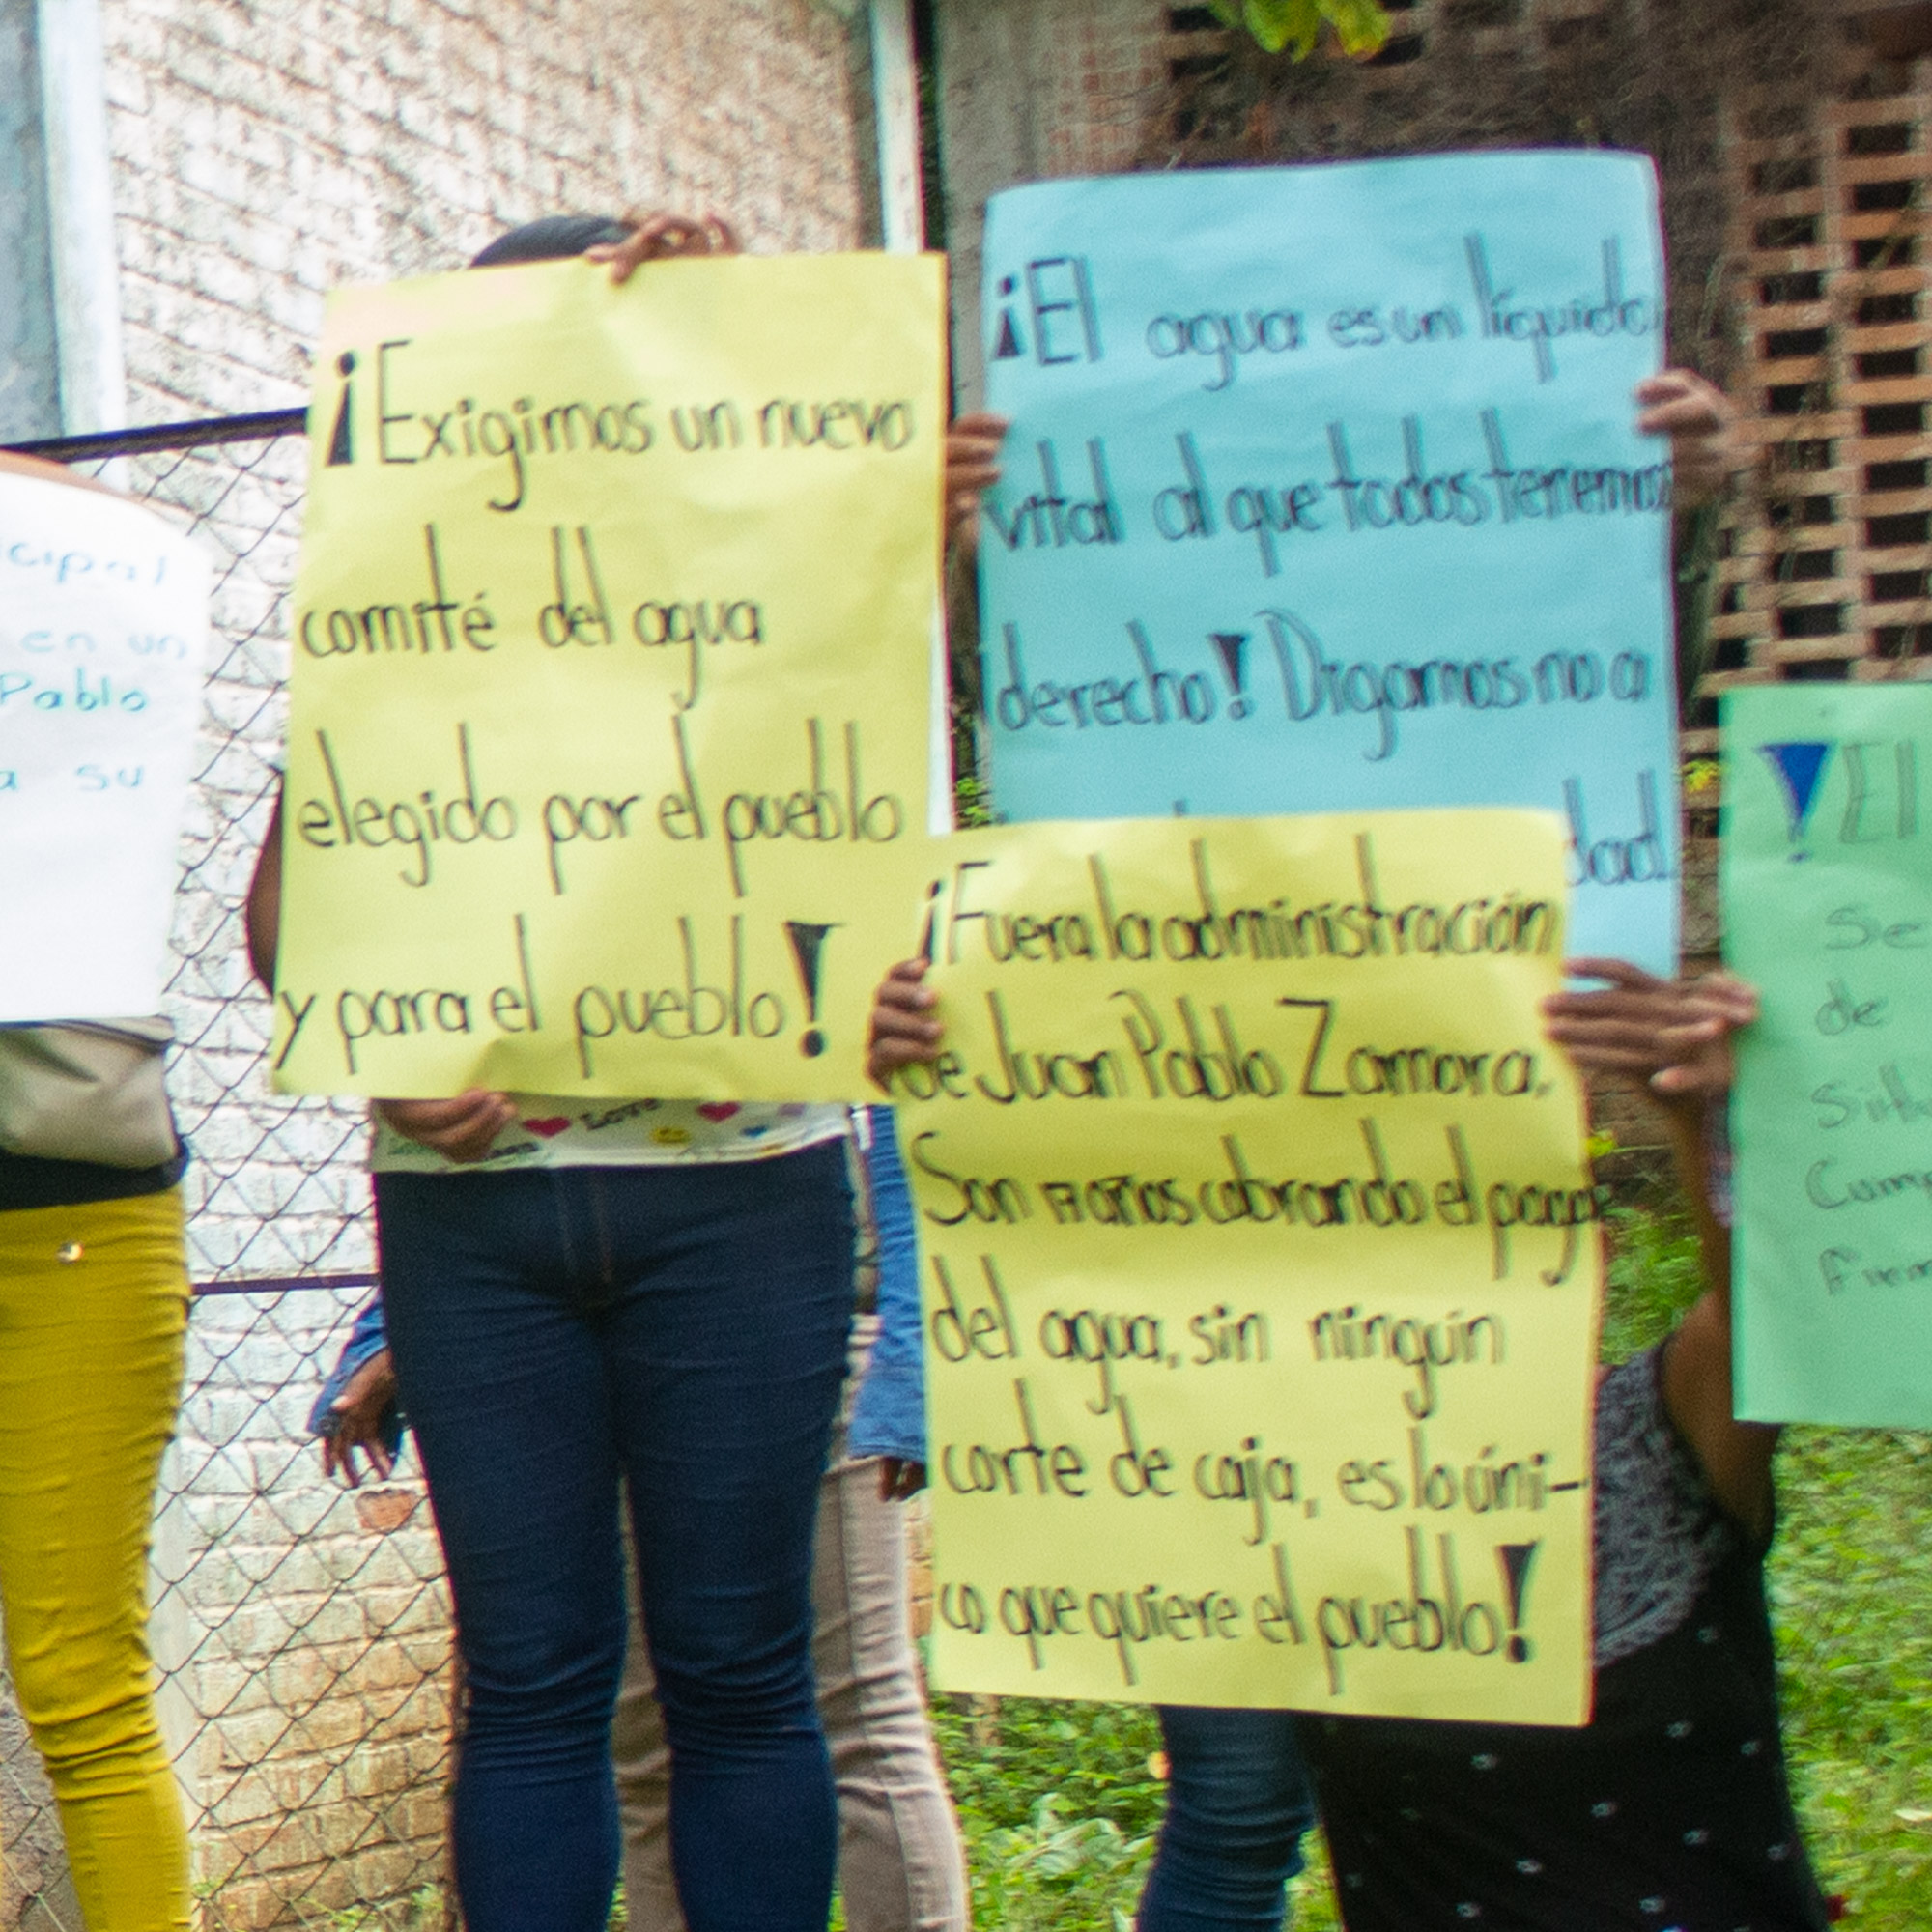 en un
Pablo
a su
¡Exigimos un nuevo
comité del agua
elegido por el pueblo
y para el pueblo!
¡El agua es un líquido
vital al que todos tenemos
derecho! Digamos no a
¡Fuera la administración
de Juan Pablo Zamora.
Son 17 años cobrando el pago
del agua, sin ningún
corte de caja, es lo úni-
co que quiere el pueblo!
¡El
Se
de